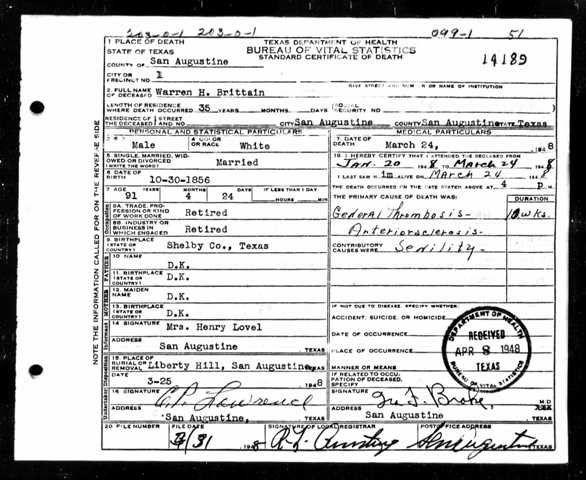 203-0-1 203-0-1 099-1 51
1 PLACE OF DEATH
STATE OF TEXAS
TEXAS DEPARTMENT OF HEALTH
BUREAU OF VITAL STATISTICS
STANDARD CERTIFICATE OF DEATH
14189
COUNTY OF San Augustine
CITY OR PRECINCT NO. 1
GIVE STREET AND NUMBER OR NAME OF INSTITUTION
2. FULL NAME OF DECEASED Warren H. Brittain
LENGTH OF RESIDENCE WHERE DEATH OCCURRED 35 YEARS MONTHS. DAYS (SOCIAL SECURITY NO. )
RESIDENCE OF THE DECEASED STREET AND NO. CITY San Augustine COUNTY San Augustine STATE Texas
PERSONAL AND STATISTICAL PARTICULARS
MEDICAL PARTICULARS
Male
4 COLOR OR RACE White
7. DATE OF DEATH March 24, 1948
5 SINGLE, MARRIED, WIDOWED OR DIVORCED (WRITE THE WORD) Married
18 I HEREBY CERTIFY THAT I ATTENDED THE DECEASED FROM
Jan. 20 1948 TO March 24 1948
6 DATE OF BIRTH 10-30-1856
I LAST SAW H im ALIVE ON March 24 1948
THE DEATH OCCURRED ON THE DATE STATED ABOVE AT 4 P M.
7 AGE YEARS MONTHS DAYS IF LESS THAN 1 DAY
91 4 24 HOURS MIN
THE PRIMARY CAUSE OF DEATH WAS:
DURATION
8A. TRADE, PROFESSION OR KIND OF WORK DONE Retired
General Thrombosis- wks.
8B. INDUSTRY OR BUSINESS IN WHICH ENGAGED Retired
Anteriorsclerosis-
9. BIRTHPLACE (STATE OR COUNTRY) Shelby Co., Texas
CONTRIBUTORY CAUSES WERE: Senility-
FATHER
10 NAME D.K.
11. BIRTHPLACE (STATE OR COUNTRY) D.K.
MOTHER
12. MAIDEN NAME D.K.
13. BIRTHPLACE (STATE OR COUNTRY) D.K.
IF NOT DUE TO DISEASE, SPECIFY WHETHER:
ACCIDENT, SUICIDE, OR HOMICIDE
14 SIGNATURE Mrs. Henry Lovel
DATE OF OCCURRENCE
ADDRESS San Augustine TEXAS
PLACE OF OCCURRENCE
DEPARTMENT OF HEALTH
RECEIVED
APR 8 1948
TEXAS
BUREAU OF VITAL STATISTICS
15. PLACE OF BURIAL OR REMOVAL Liberty Hill, San Augustine TEXAS
MANNER OR MEANS
DATE 3-25 1948
IF RELATED TO OCCUPATION OF DECEASED, SPECIFY
16 SIGNATURE Lawrence
SIGNATURE M.D
ADDRESS San Augustine, TEXAS
ADDRESS San Augustine TEXAS
20 FILE NO. FILE DATE SIGNATURE OF LOCAL REGISTRAR POSTOFFICE ADDRESS
31 1948 San Augustine TEXAS
NOTE THE INFORMATION CALLED FOR ON THE REVERSE SIDE